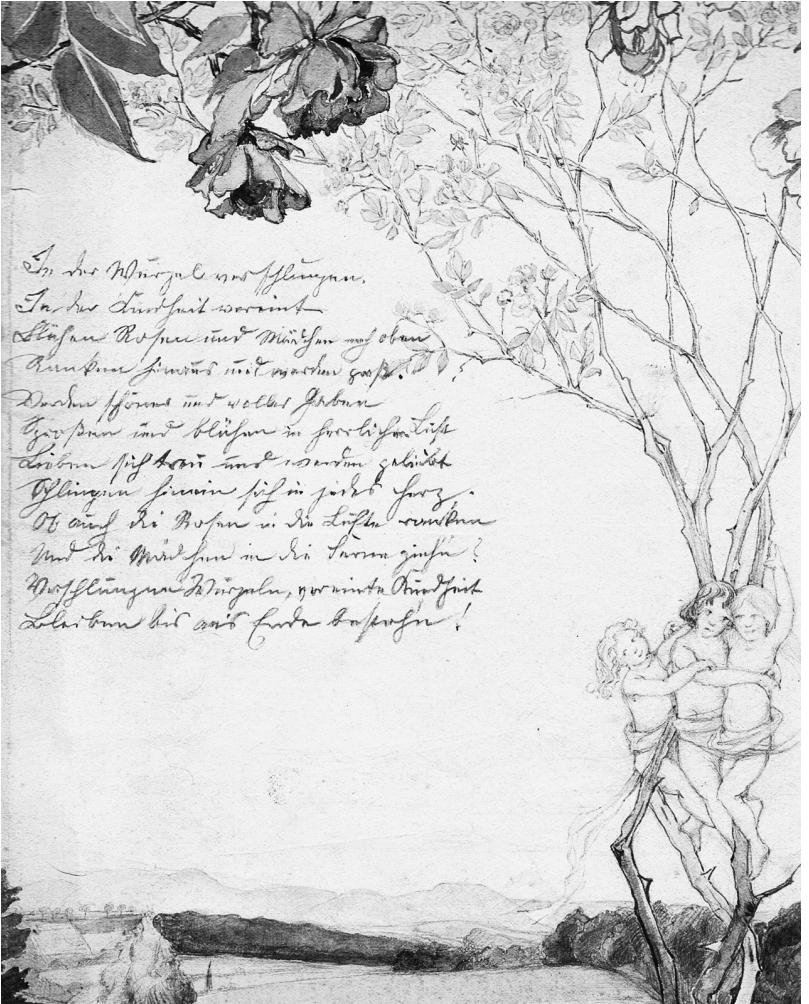 In der Wurzel verschlungen,
In der Kindheit vereint
Blühen Rosen und Mädchen nach oben
Ranken hinaus und werden groß.
Werden schönes und voller Gaben
Sproßen und blühen in herrlicher Lust
Lieben sich treu und werden geliebt
Schlingen hinein sich in jedes Herz.
Ob auch die Rosen in die Lüfte ranken
Und die Mädchen in die Ferne ziehn?
Verschlungne Wurzeln, vereinte Kindheit
Bleiben bis ans Ende bestehn!